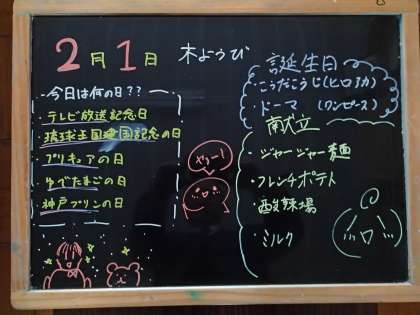 2月1日 木ようび
今日は何の日??
・テレビ放送記念日
・琉球王国建国記念の日
・プリキュアの日
・ゆでたまごの日
・神戸プリンの日
やっほー!
誕生日
・こうだこうじ(ヒロアカ)
・ドーマ (ワンピース)
献立
・ジャージャー麺
・フレンチポテト
・酸辣湯
・ミルク